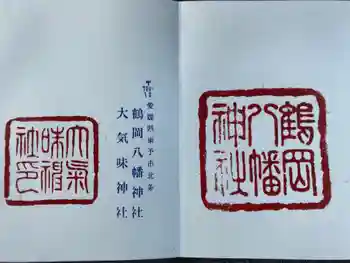 鶴岡
八幡
神社
愛媛県東予市北条
鶴岡八幡神社
大気味神社
大氣
味神
社印